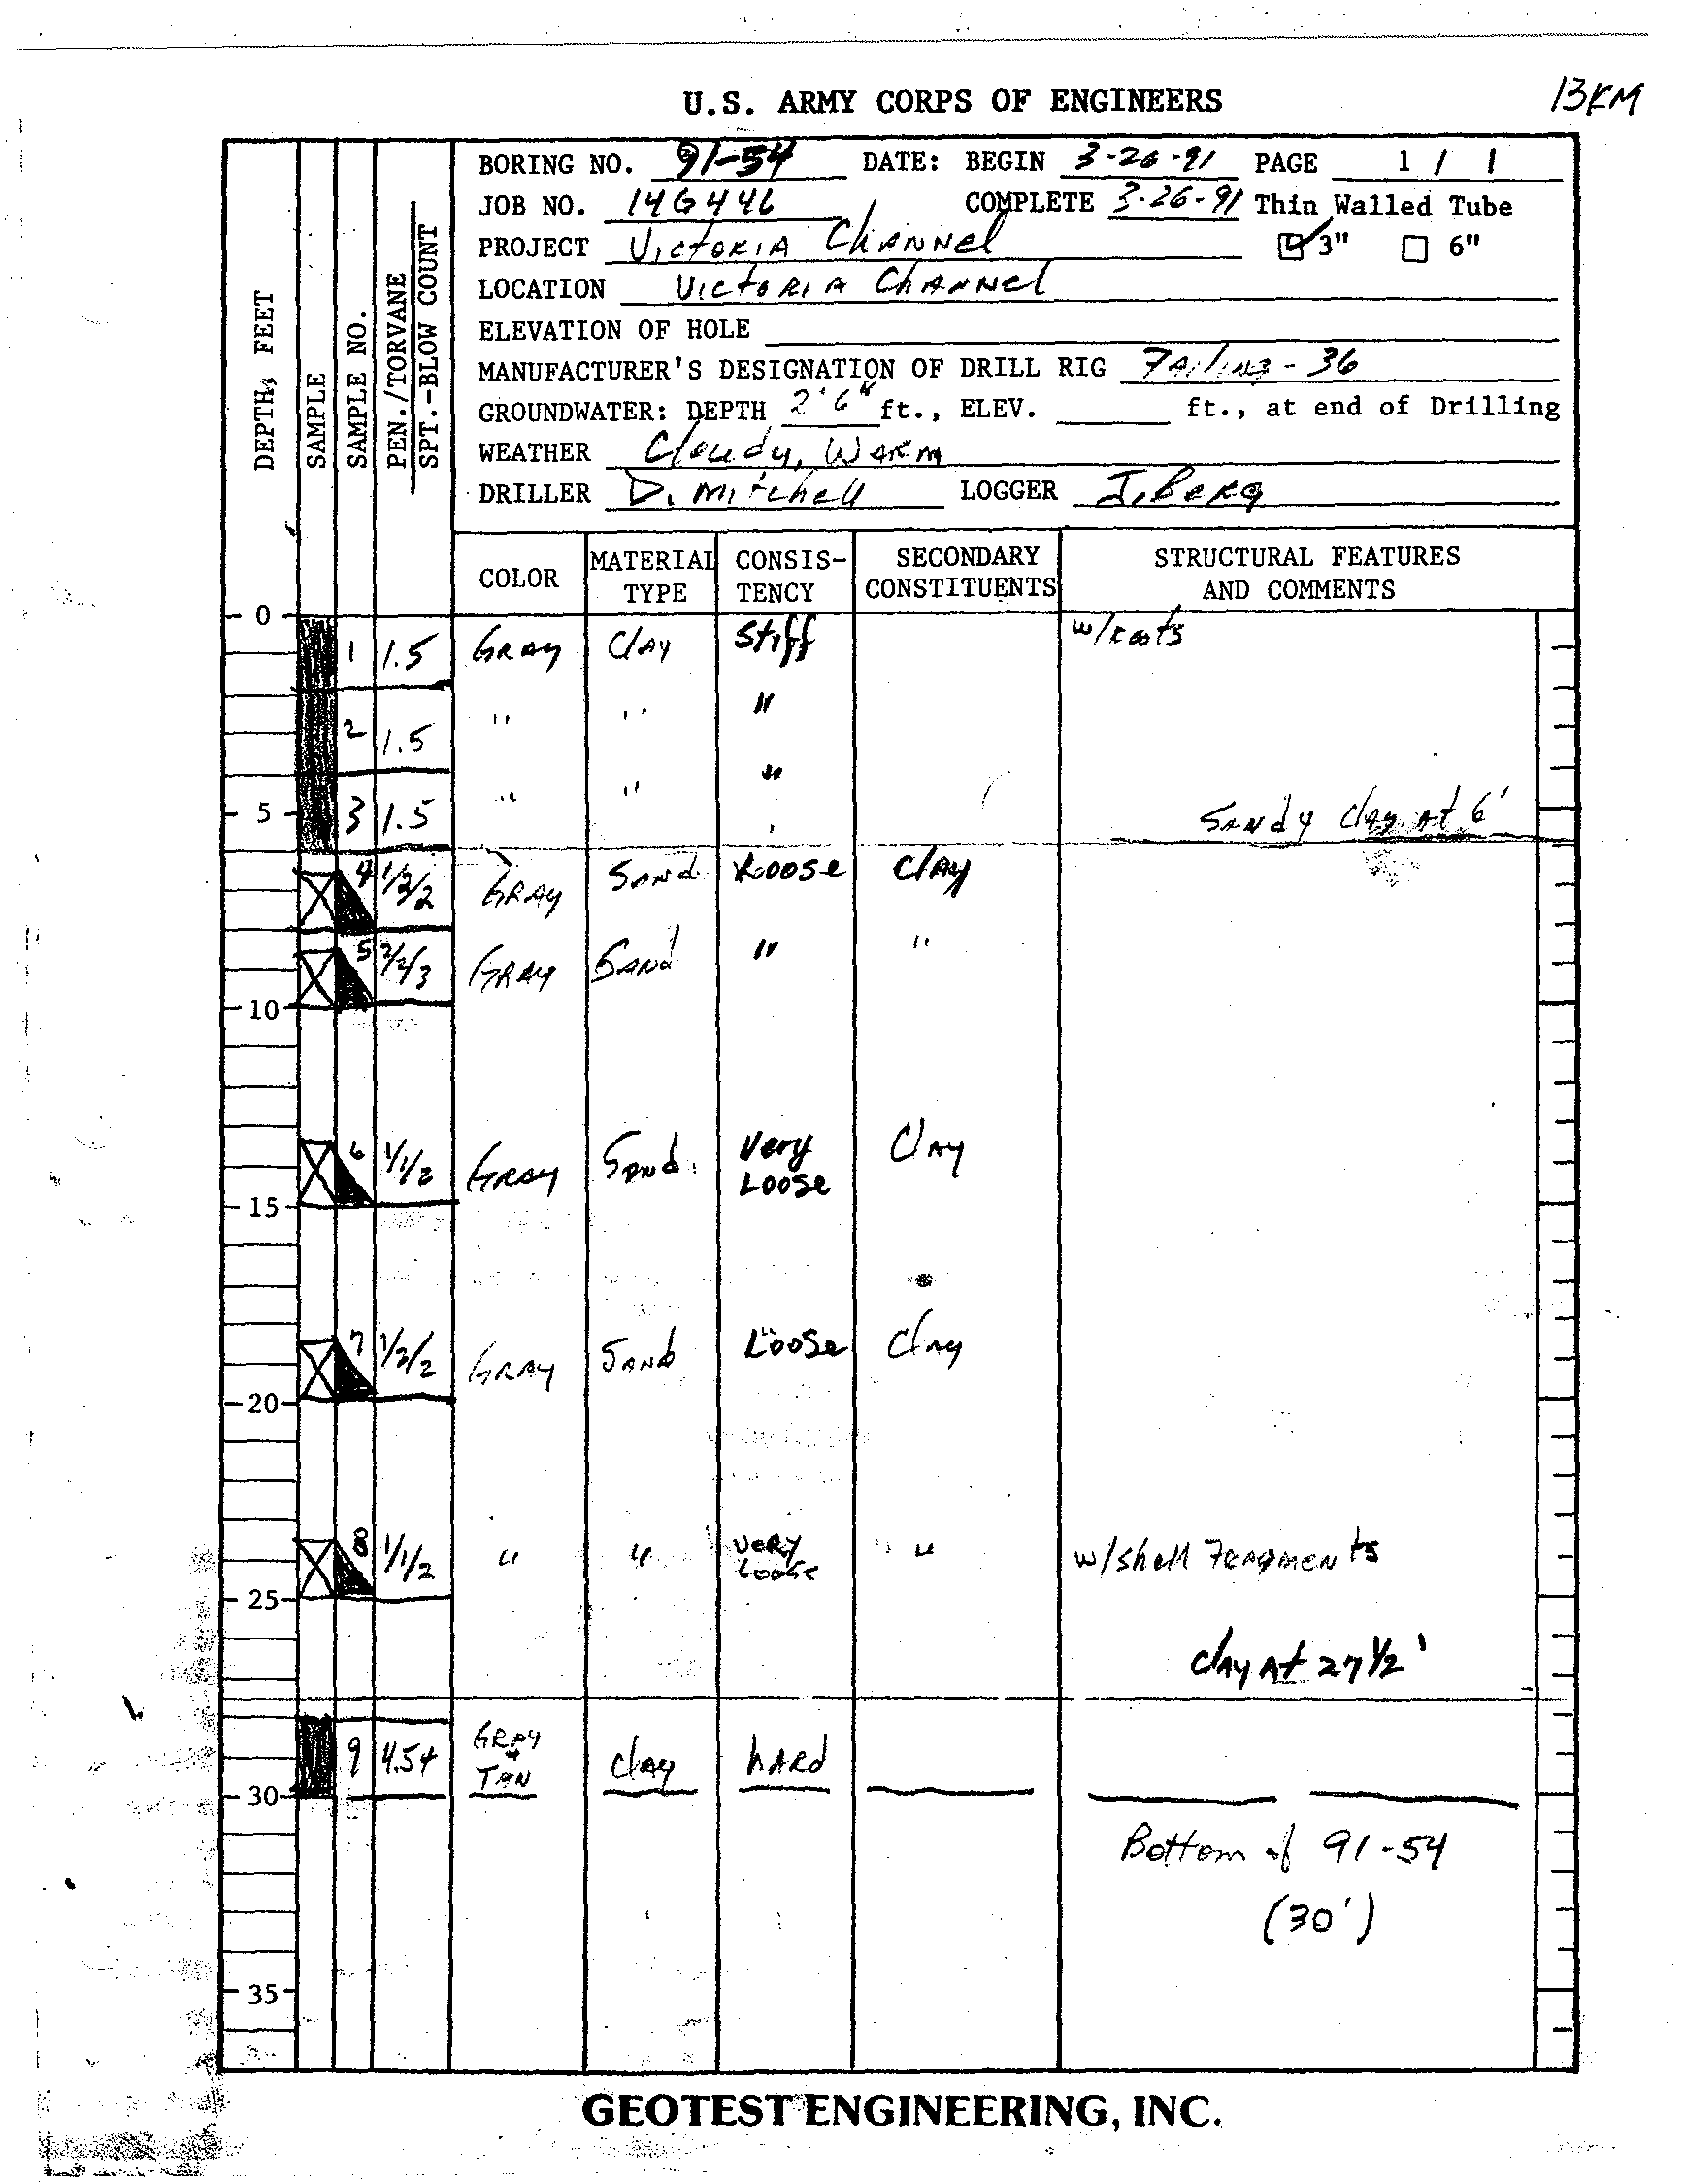 U.S. ARMY CORPS OF ENGINEERS
13KM
BORING NO. 91-54 DATE: BEGIN 3-26-91 PAGE 1 / 1
JOB NO. 14G446 COMPLETE 3-26-91 Thin Walled Tube
PROJECT Victoria Channel 3" 6"
LOCATION Victoria Channel
ELEVATION OF HOLE
MANUFACTURER'S DESIGNATION OF DRILL RIG Failing-36
GROUNDWATER: DEPTH 2'6" ft., ELEV. ft., at end of Drilling
WEATHER Cloudy, Warm
DRILLER D. Mitchell LOGGER J. Berg
DEPTH, FEET
SAMPLE
SAMPLE NO.
PEN./TORVANE
SPT.-BLOW COUNT
COLOR MATERIAL TYPE CONSIS-TENCY SECONDARY CONSTITUENTS STRUCTURAL FEATURES AND COMMENTS
0
1 1.5 Gray Clay Stiff w/roots
2 1.5 " " "
" " "
5 3 1.5 Sandy Clay At 6'
4 1/2/2 Gray Sand Loose Clay
5 2/2/3 Gray Sand " "
10
6 1/1/2 Gray Sand Very Loose Clay
15
7 1/2/2 Gray Sand Loose Clay
20
8 1/1/2 " " Very Loose " w/shell Fragments
25
Clay At 27 1/2'
9 4.5+ Gray + Tan Clay hard
30
Bottom of 91-54
(30')
35
GEOTEST ENGINEERING, INC.